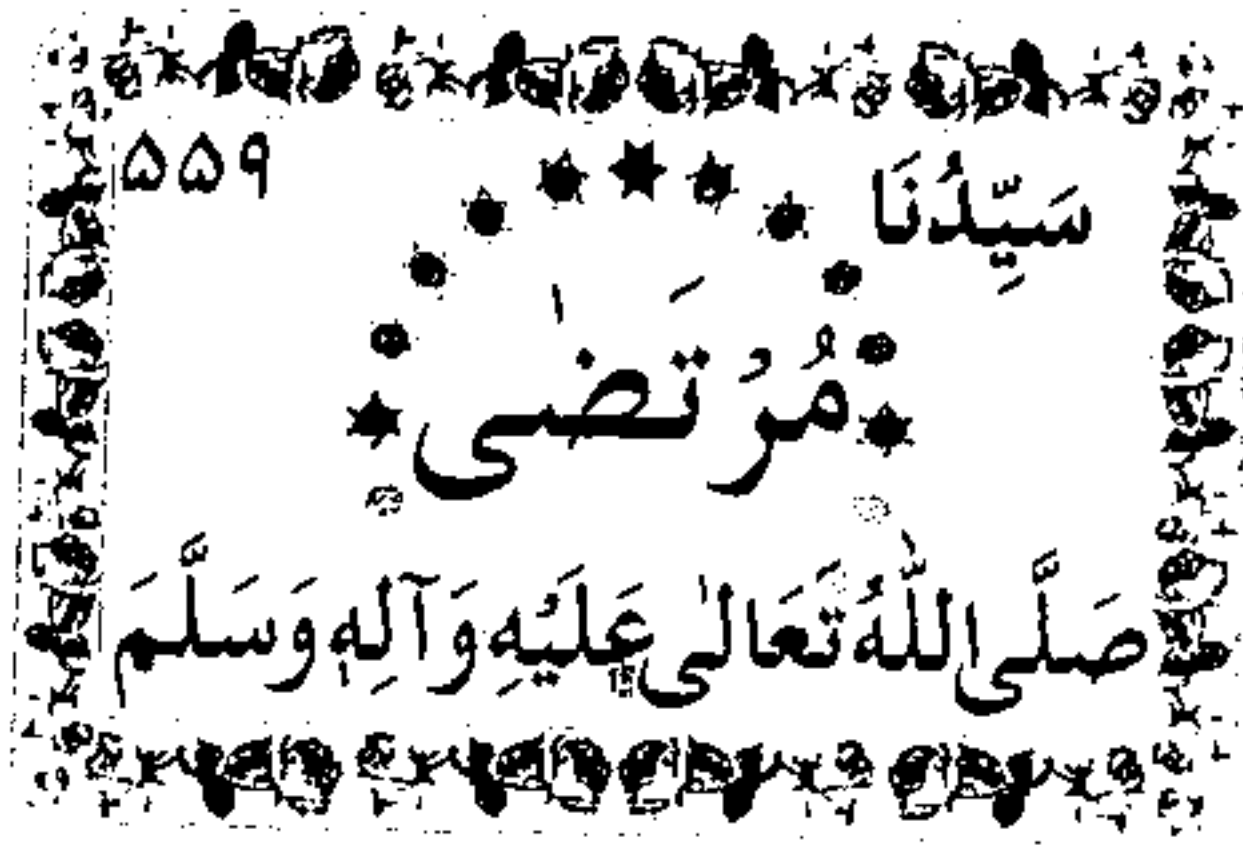 ۵۵۹
سَيِّدُنَا
مُرْتَضٰى
صَلَّى اللّٰهُ تَعَالٰى عَلَيْهِ وَآلِهٖ وَسَلَّمَ